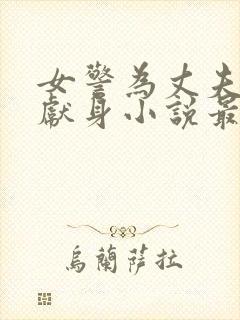 女警為丈夫
獻身小説最
烏蘭薩拉